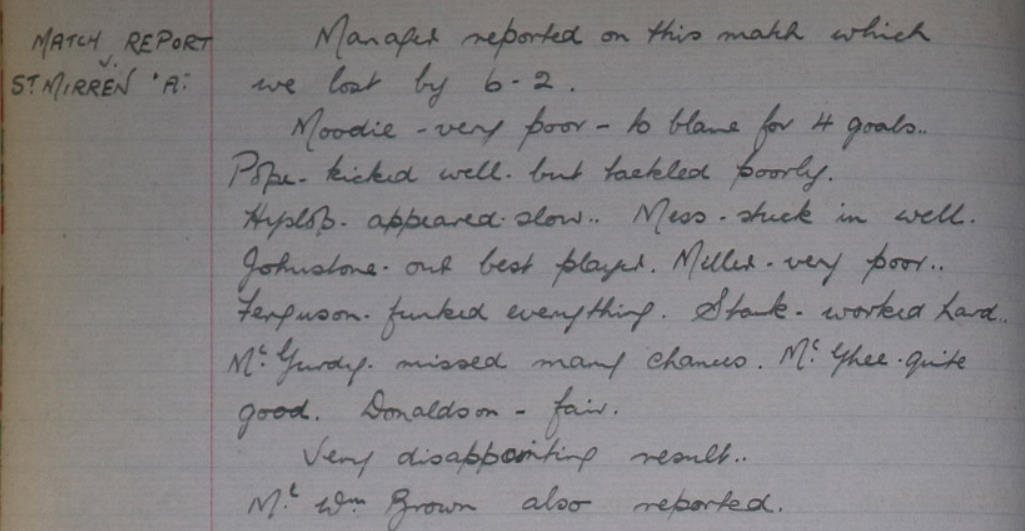 MATCH REPORT
v.
ST MIRREN 'A'.
Manager reported on this match which
we lost by 6-2.
Moodie - very poor - to blame for 4 goals..
Pope - kicked well - but tackled poorly.
Hyslop - appeared slow.. Mess - stuck in well.
Johnstone - our best player. Miller - very poor..
Ferguson - funked everything. Stark - worked hard..
Mc Gurdy - missed many chances. Mc Ghee - quite
good. Donaldson - fair.
Very disappointing result..
Mr Wm Brown also reported.